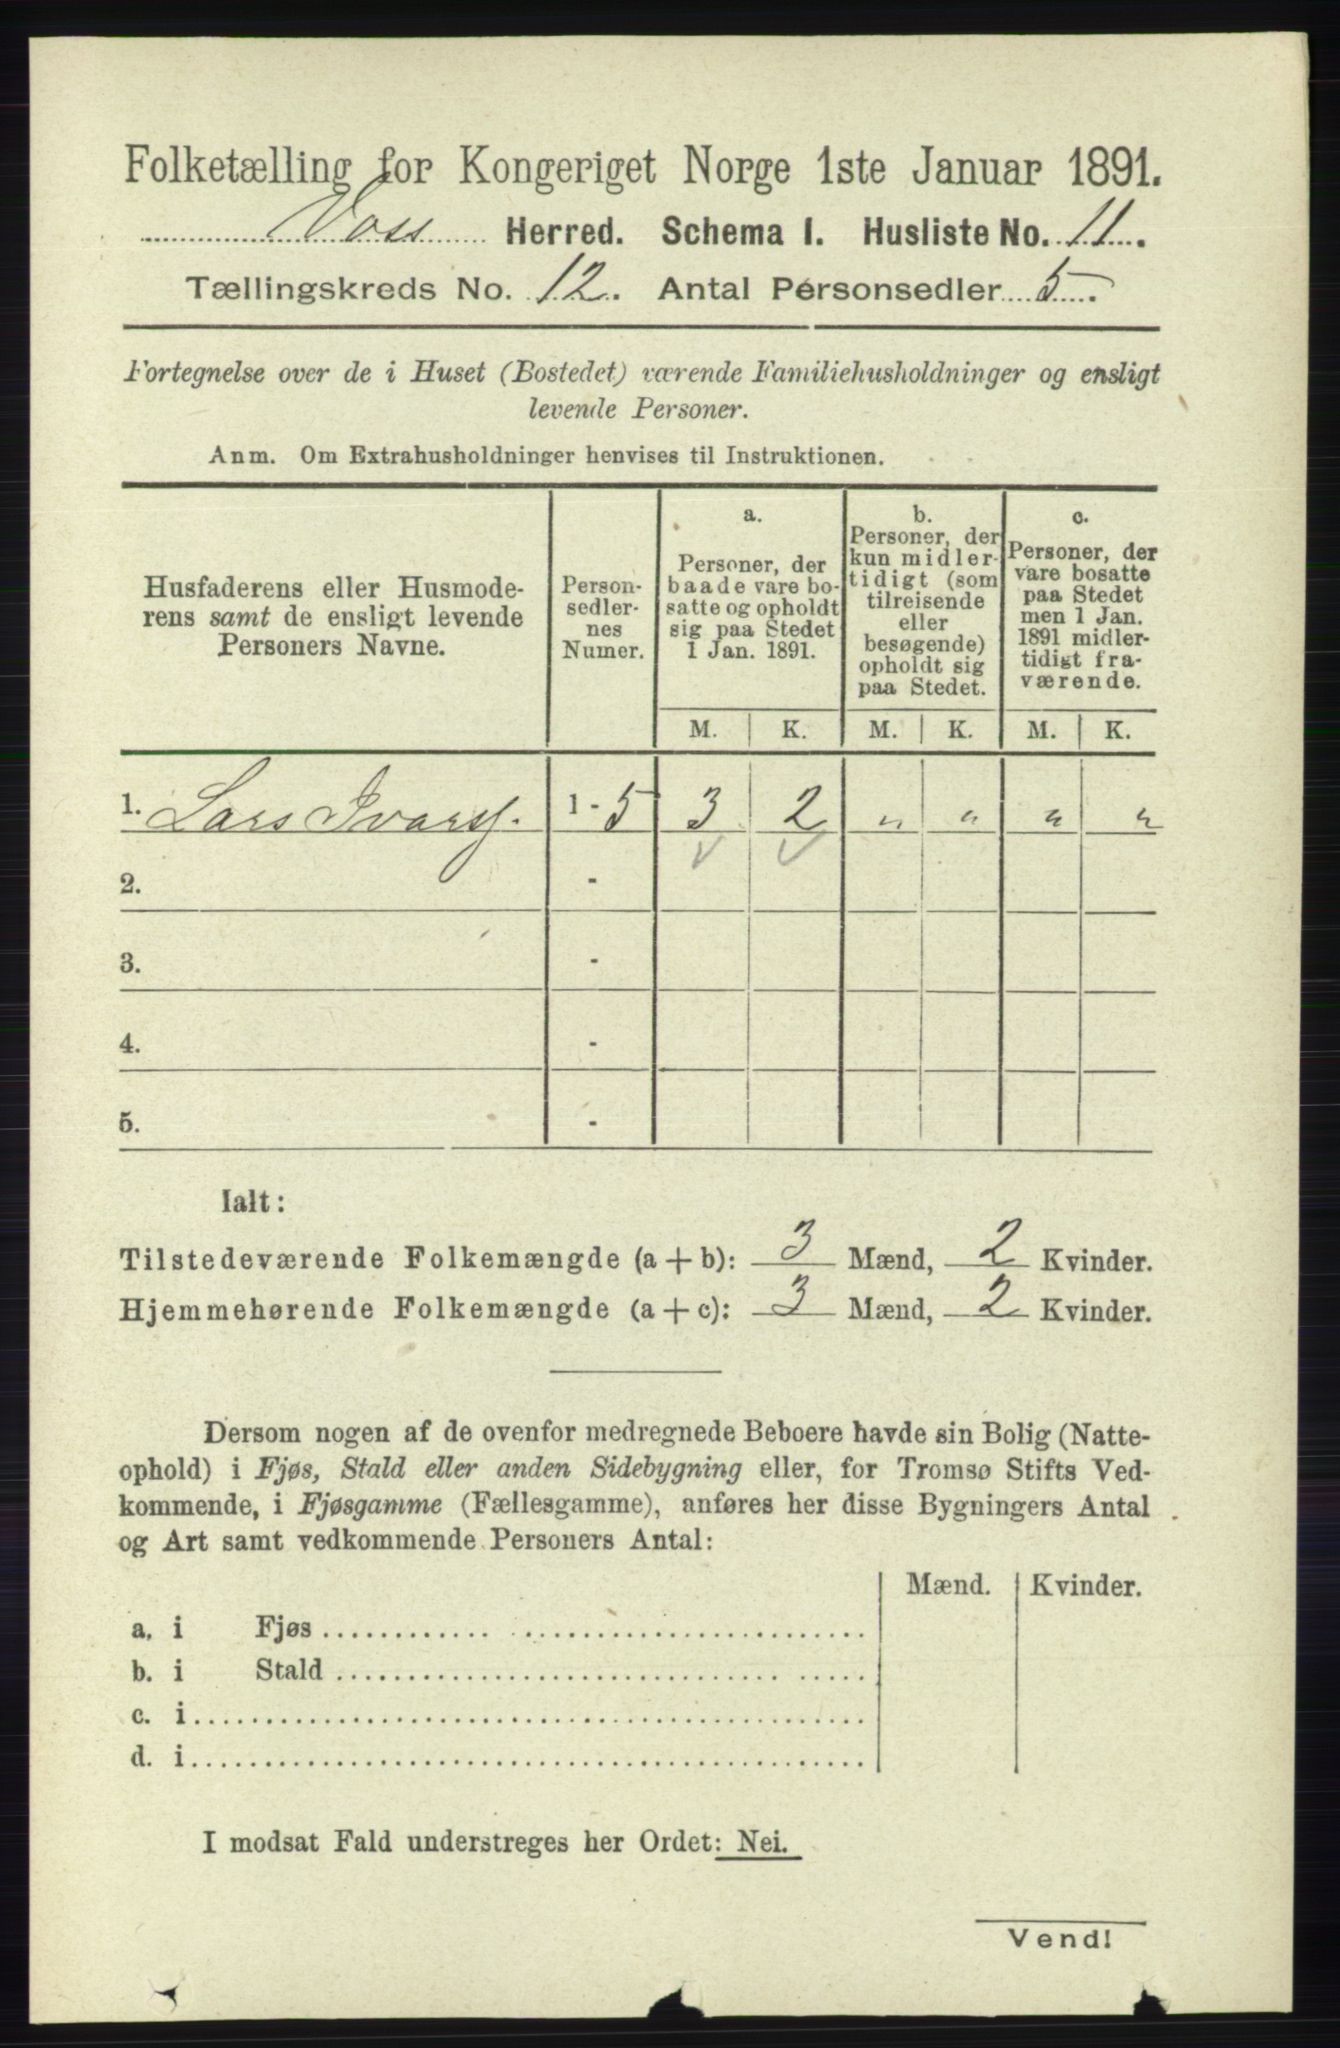 Folketælling for Kongeriget Norge 1ste Januar 1891.
Voss Herred. Schema I. Husliste No. 11.
Tællingskreds No. 12. Antal Personsedler 5.
Fortegnelse over de i Huset (Bostedet) værende Familiehusholdninger og ensligt
levende Personer.
Anm. Om Extrahusholdninger henvises til Instruktionen.
Husfaderens eller Husmode-
rens samt de ensligt levende
Personers Navne.
Person-
sedler-
nes
Numer.
a.
Personer, der
baade vare bo-
satte og opholdt
sig paa Stedet
1 Jan. 1891.
b.
Personer, der
kun midler-
tidigt (som
tilreisende
eller
besøgende)
opholdt sig
paa Stedet.
c.
Personer, der
vare bosatte
paa Stedet
men 1 Jan.
1891 midler-
tidigt fra-
værende.
M. K. M. K. M. K.
1. Lars Ivarss. 1 - 5 3 2 „ „ „ „
2. -
3. -
4. -
5. -
Ialt:
Tilstedeværende Folkemængde (a + b): 3 Mænd, 2 Kvinder.
Hjemmehørende Folkemængde (a + c): 3 Mænd, 2 Kvinder.
Dersom nogen af de ovenfor medregnede Beboere havde sin Bolig (Natte-
ophold) i Fjøs, Stald eller anden Sidebygning eller, for Tromsø Stifts Ved-
kommende, i Fjøsgamme (Fællesgamme), anføres her disse Bygningers Antal
og Art samt vedkommende Personers Antal:
Mænd. Kvinder.
a. i Fjøs
b. i Stald
c. i
d. i
I modsat Fald understreges her Ordet: Nei.
Vend!